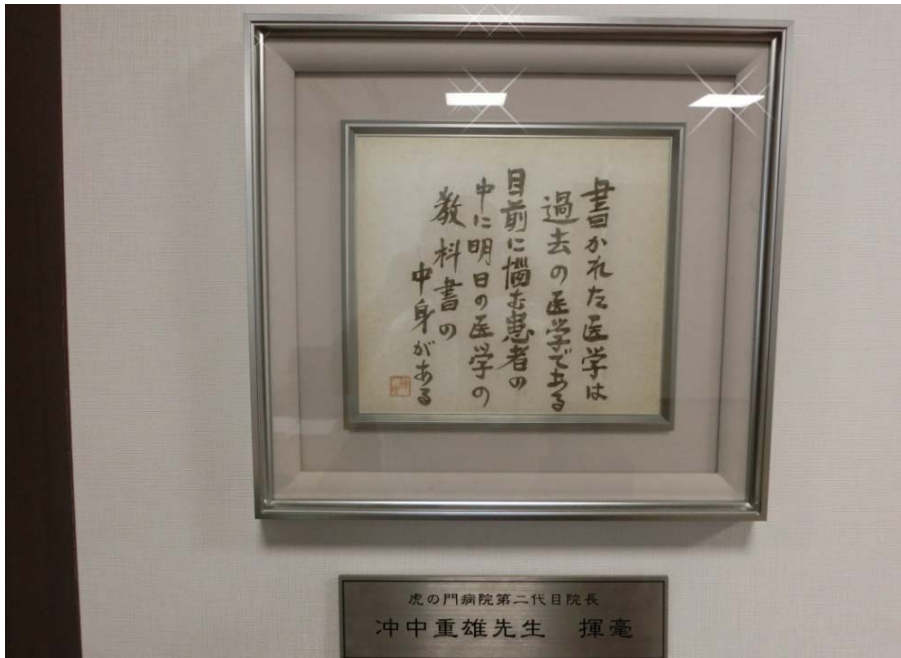 書かれた医学は
過去の医学である
目前に悩む患者の
中に明日の医学の
教科書の
中身がある
虎の門病院第二代目院長
冲中重雄先生 揮毫